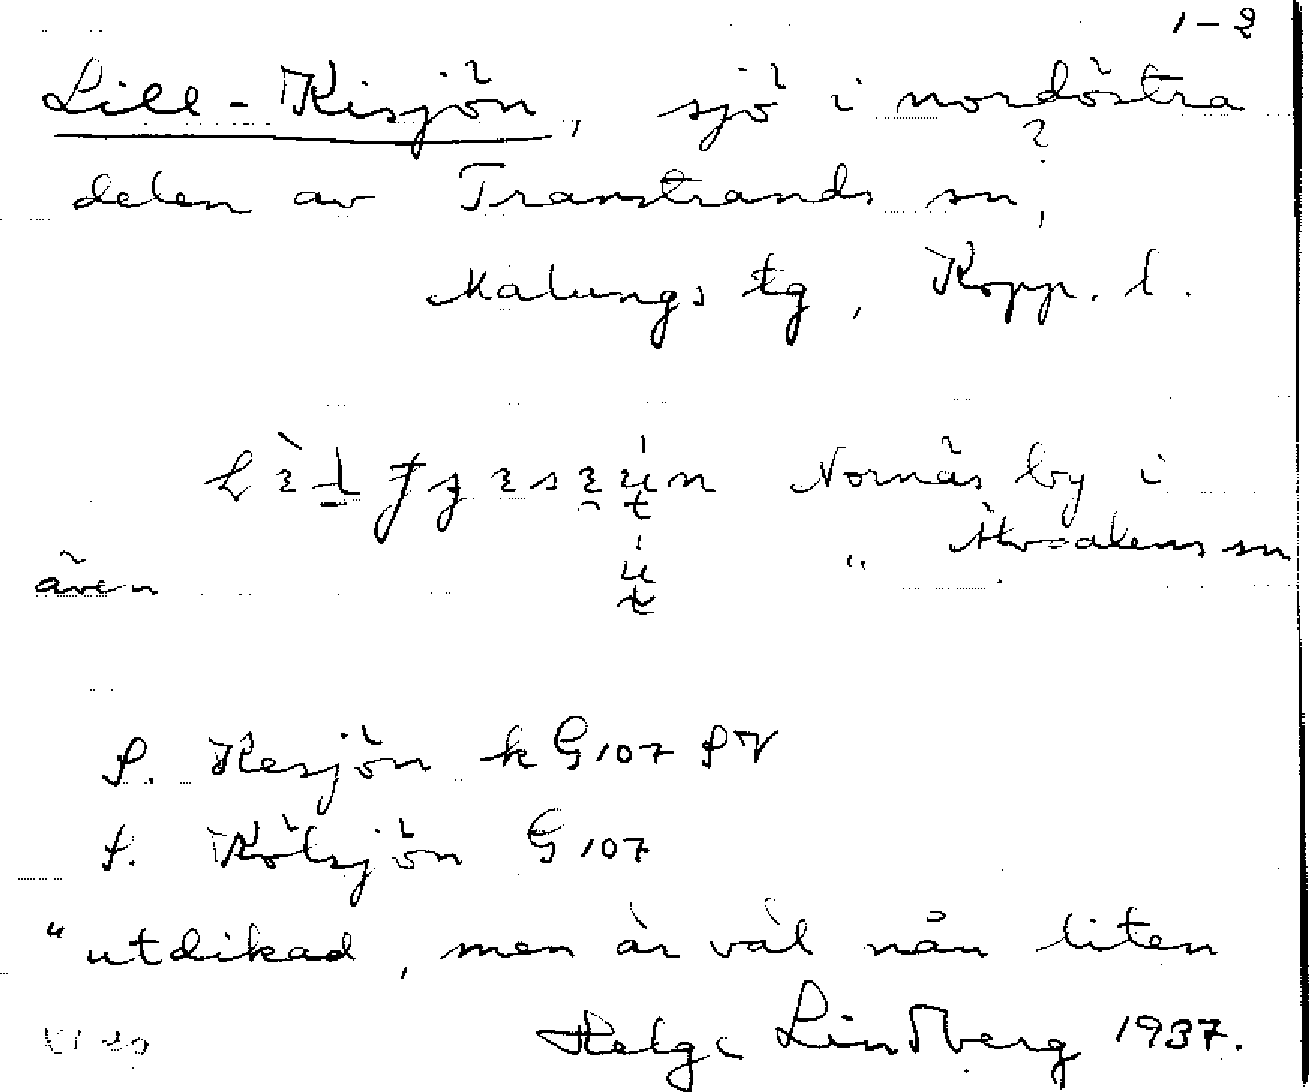 1-2
Lill-Kisjön, sjö i nordöstra
?
delen av Transtrands sn,
Malungs tg, Kopp. l.
Nornäs by i
även " Älvdalens sn
S. Kesjön k G 107 SV
S. Kölsjön G 107
" utdikad, men är väl nån liten
Helge Lindberg 1937.